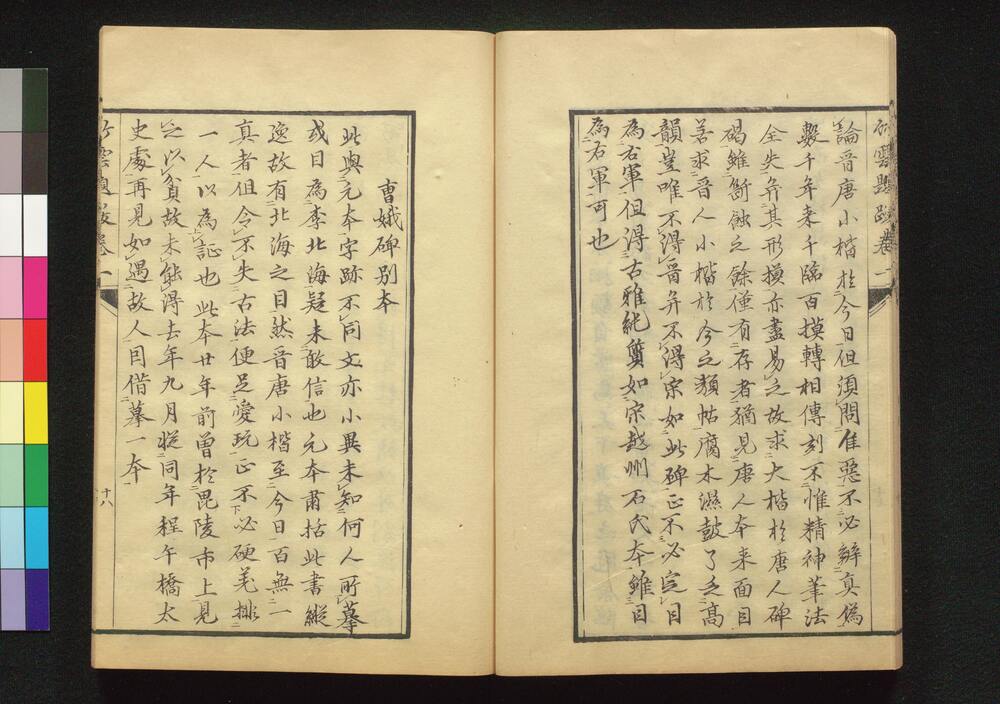 竹雲題跋卷一
論晋唐小楷於今日但須問佳惡不必辨真偽
數千年来千臨百摸轉相傳刻不惟精神筆法
全失并其形摸亦盡易之故求大楷於唐人碑
碣雖斷蝕之餘僅有存者猶見唐人本来面目
若求晋人小楷於今之類帖腐木濕鼓了乏高
韻豈唯不得晋并不得宋如此碑正不必定目
為右軍但得古雅純質如宋越州石氏本雖目
為右軍可也
曹娥碑別本
此與元本字跡不同文亦小異未知何人所摹
或目為李北海疑未敢信也元本肅括此書縱
逸故有北海之目然晋唐小楷至今日百無一
真者但令不失古法便足愛玩正不必硬差排
一人以為証也此本廿年前曽於毘陵市上見
之以貧故未能得去年九月從同年程午橋太
史處再見如遇故人因借摹一本
竹雲題跋卷一
十八